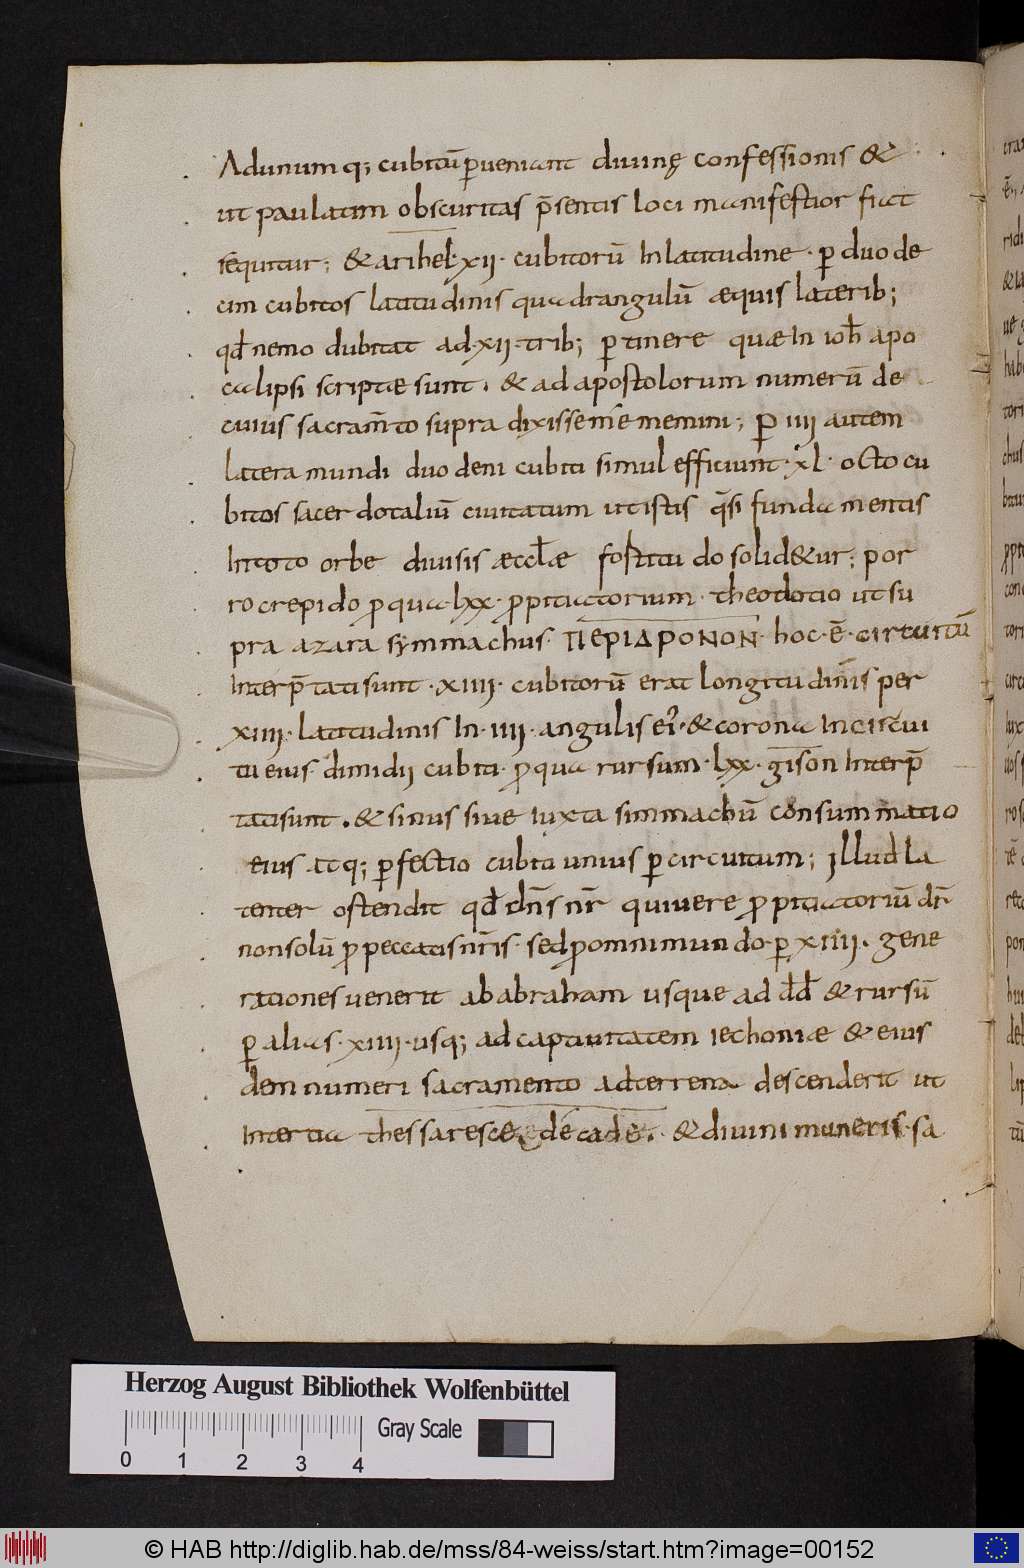 Adunumq; cubitū ꝑueniant diuinę confessionis &
ut paulatim obscuritas p̄sentis loci manifestior fiat
sequitur; & arihel · xii · cubitorū In latitudine · ꝑ duode
cim cubitos latitudinis quadrangulū æquis laterib;
qđ nemo dubitat ad · xii · trib; ꝑtinere quæ In ioh̄ apo
calipsi scriptæ sunt. & ad apostolorum numerū de
cuius sacram̄to supra dixisse me memini; ꝑ iiii autem
latera mundi duodeni cubiti simul efficiunt · xl · octo cu
bitos sacerdotaliū ciuitatum ut istis q̄si fundamentis
In toto orbe diuisis æccl̄æ fortitudo solid&ur; por
ro crepido ꝓ qua · lxx · ꝓpitiatorium · theodotio ut su
pra azara symmachus · ΠΕΡΙΔΡΟΝΟΝ · hoc · ē · circuitū
Interp̄tati sunt · xiiii · cubitorū erat longitudinis per
xiiii · latitudinis In · iiii · angulis ei᷒ · & corona In circui
tu eius dimidii cubiti · ꝓ qua rursum · lxx · gison Interp̄
tati sunt . & sinus siue iuxta simmachū consummatio
eius atq; ꝑfectio cubiti unius ꝑ circuitum; Illud la
tenter ostendit qđ dn̄s nr̄ qui uere ꝓpitiatoriū dr̄
non solū ꝓ peccatis nr̄is · sed ꝓ omni mundo · ꝑ xiiii . gene
rationes uenerit ab abraham usque ad dd̄ & rursū
ꝑ alias · xiiii · usq; ad captiuitatem iechoniæ & eius
dem numeri sacramento ad terrena descenderit ut
In tertia thessarescedecade . & diuini muneris · sa
Herzog August Bibliothek Wolfenbüttel
Gray Scale
0 1 2 3 4
© HAB http://diglib.hab.de/mss/84-weiss/start.htm?image=00152